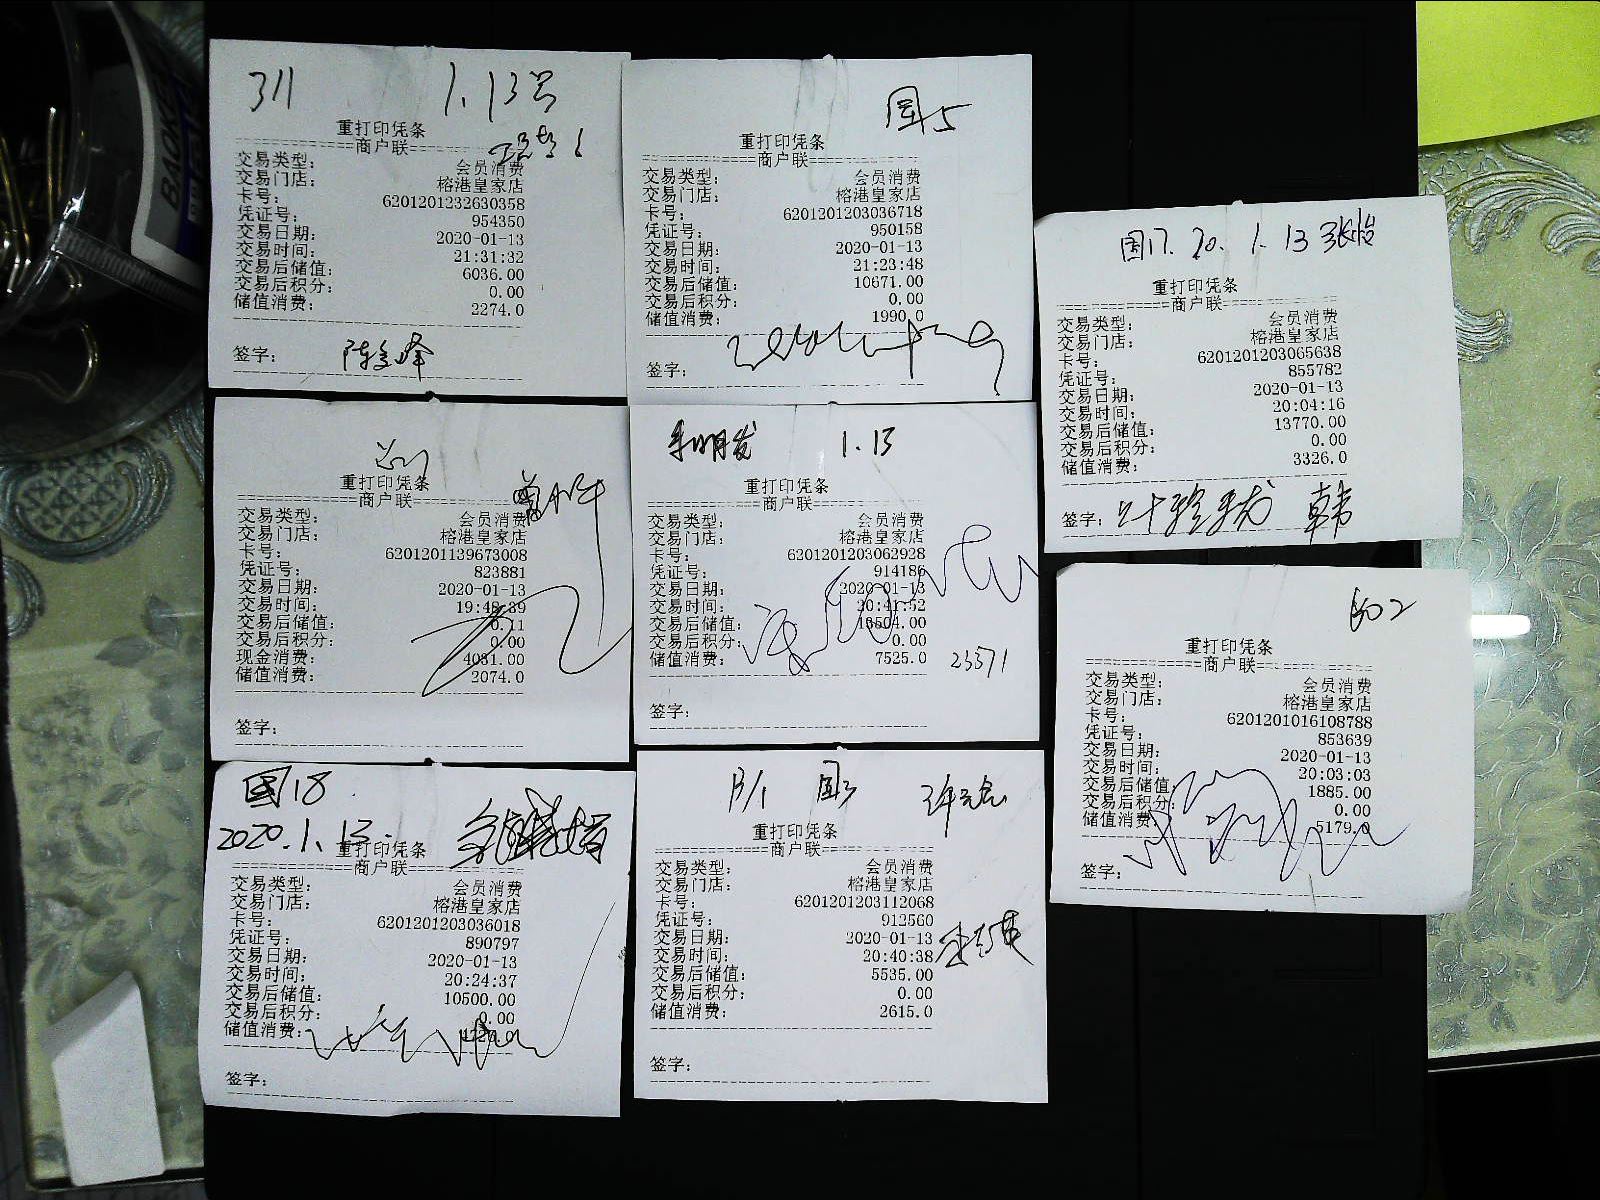 311 1.13号
重打印凭条
商户联
交易类型: 会员消费
交易门店: 榕港皇家店
卡号: 6201201232630358
凭证号: 954350
交易日期: 2020-01-13
交易时间: 21:31:32
交易后储值: 6036.00
交易后积分: 0.00
储值消费: 2274.0
签字:
国5
重打印凭条
商户联
交易类型: 会员消费
交易门店: 榕港皇家店
卡号: 6201201203036718
凭证号: 950158
交易日期: 2020-01-13
交易时间: 21:23:48
交易后储值: 10671.00
交易后积分: 0.00
储值消费: 1990.0
签字:
国17. 20. 1. 13
重打印凭条
商户联
交易类型: 会员消费
交易门店: 榕港皇家店
卡号: 6201201203065638
凭证号: 855782
交易日期: 2020-01-13
交易时间: 20:04:16
交易后储值: 13770.00
交易后积分: 0.00
储值消费: 3326.0
签字: 韩
重打印凭条
商户联
交易类型: 会员消费
交易门店: 榕港皇家店
卡号: 6201201139673008
凭证号: 823881
交易日期: 2020-01-13
交易时间:
交易后储值: 0.11
交易后积分: 0.00
现金消费: 4031.00
储值消费: 2074.0
签字:
李明发 1.13
重打印凭条
商户联
交易类型: 会员消费
交易门店: 榕港皇家店
卡号: 6201201203062928
凭证号: 914186
交易日期: 2020-01-13
交易时间: 20:41:52
交易后储值:
交易后积分: 0.00
储值消费: 7525.0 23571
签字:
602
重打印凭条
商户联
交易类型: 会员消费
交易门店: 榕港皇家店
卡号: 6201201016108788
凭证号: 853639
交易日期: 2020-01-13
交易时间: 20:03:03
交易后储值: 1885.00
交易后积分: 0.00
储值消费: 5179.0
签字:
国18
2020.1.13.
重打印凭条
商户联
交易类型: 会员消费
交易门店: 榕港皇家店
卡号: 6201201203036018
凭证号: 890797
交易日期: 2020-01-13
交易时间: 20:24:37
交易后储值: 10500.00
交易后积分: 0.00
储值消费:
签字:
13/1 国3
重打印凭条
商户联
交易类型: 会员消费
交易门店: 榕港皇家店
卡号: 6201201203112068
凭证号: 912560
交易日期: 2020-01-13
交易时间: 20:40:38
交易后储值: 5535.00
交易后积分: 0.00
储值消费: 2615.0
签字: